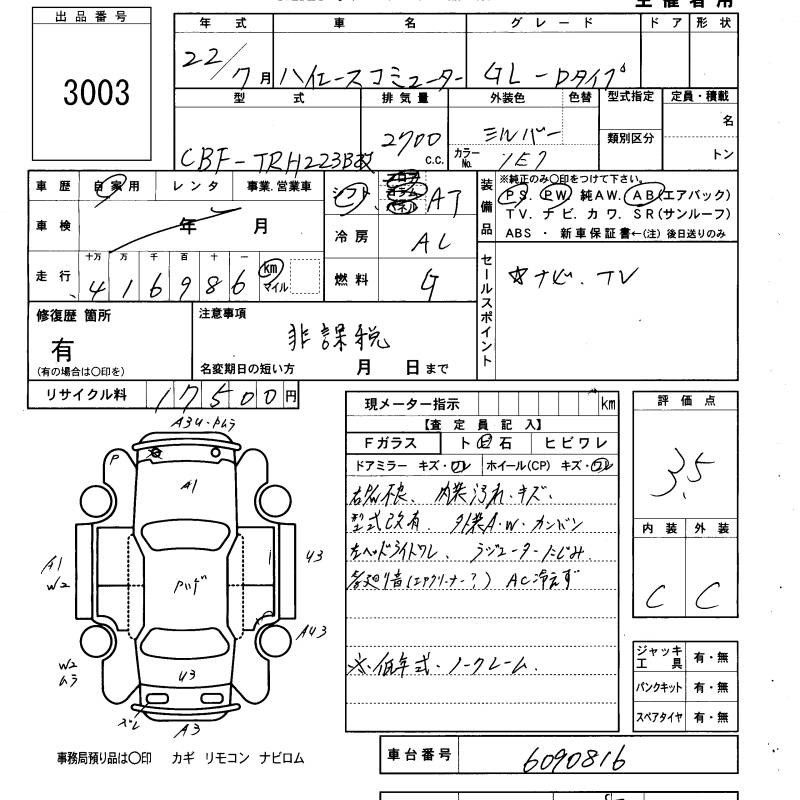 出品番号
3003
年式 車名 グレード ドア 形状
22/7月 ハイエースコミューター GL-Dタイプ
型式 排気量 外装色 色替 型式指定 定員・積載
類別区分 名
CBF-TRH223B改 2700 c.c. シルバー トン
カラーNo. 1E7
車歴 自家用 レンタ 事業.営業車
シフト コラム AT
車検 年 月
冷房 AC
走行 十万 万 千 百 十 一 km マイル
416986
燃料 G
装備品
※純正のみ○印をつけて下さい。
PS. PW. 純AW. AB(エアバック)
TV. ナビ. カワ. SR(サンルーフ)
ABS ・ 新車保証書←(注) 後日送りのみ
セールスポイント
☆ナビ. TV
修復歴 箇所
有
(有の場合は○印を)
注意事項
非課税
名変期日の短い方 月 日まで
リサイクル料 17500円
現メーター指示 km
【査定員記入】
Fガラス ト 石 ヒビワレ
ドアミラー キズ・ワレ ホイール(CP) キズ・ワレ
内装汚れ.キズ.
型式改有. 外装A.W.カンドン
左ヘッドライトワレ. ラジエーターにじみ.
(エアクリーナー?) AC冷えず
※低年式.ノークレーム.
評価点
3.5
内装 外装
C C
ジャッキ工具 有・無
パンクキット 有・無
スペアタイヤ 有・無
A34・トムラ
P
A1
A1
W2
U3
A43
W2
ムラ
U3
A3
事務局預り品は○印 カギ リモコン ナビロム
車台番号 6090816